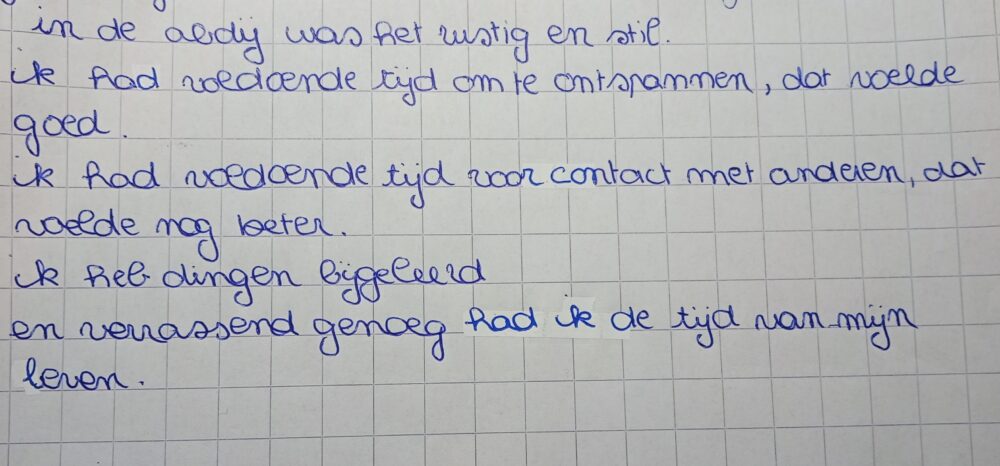 in de abdij was het rustig en stil.
ik had voldoende tijd om te ontspannen, dat voelde
goed.
ik had voldoende tijd voor contact met anderen, dat
voelde nog beter.
ik heb dingen bijgeleerd
en verrassend genoeg had ik de tijd van mijn
leven.